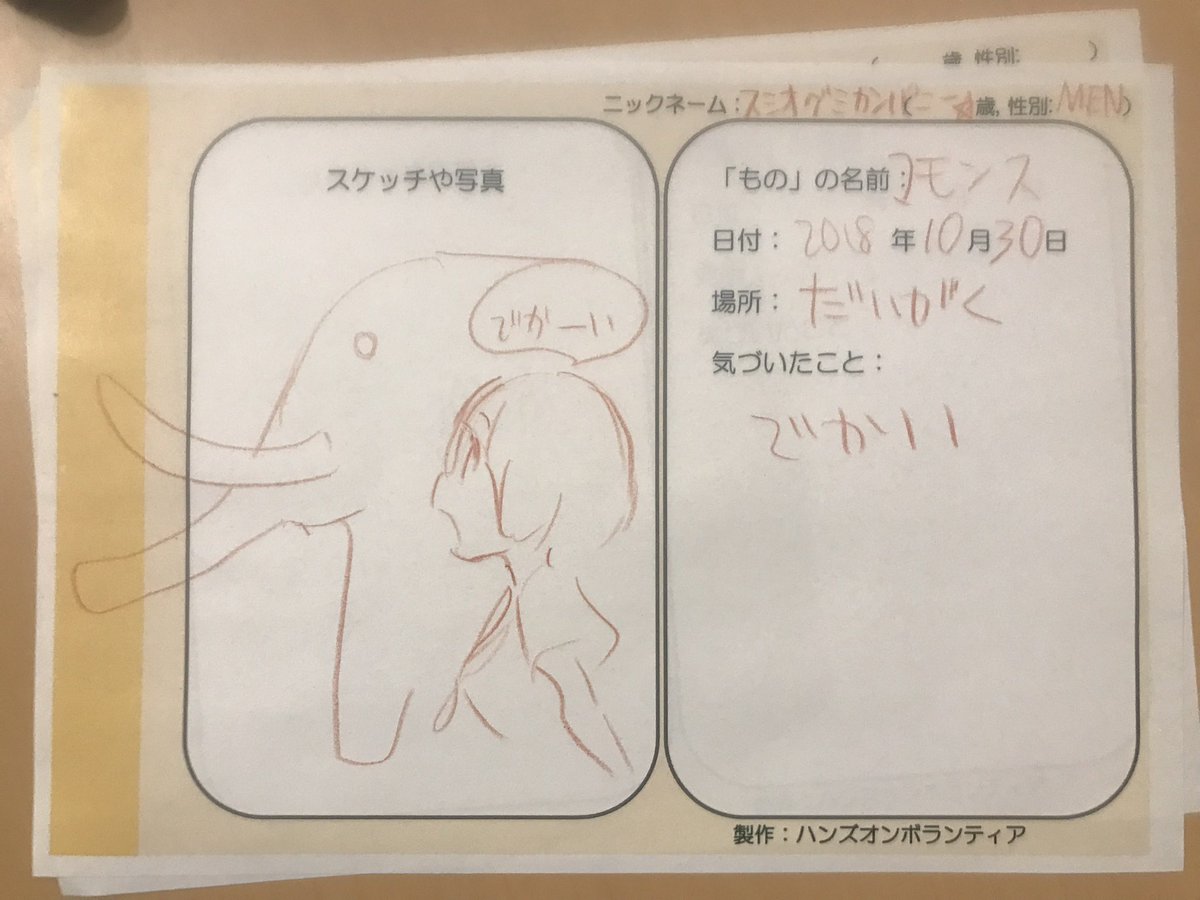 歳, 性別: )
ニックネーム:スミオグミカンパニー 歳, 性別: MEN)
スケッチや写真
でかーい
「もの」の名前: コモンス
日付: 2018 年 10 月 30 日
場所: だいがく
気づいたこと:
でかいい
製作:ハンズオンボランティア